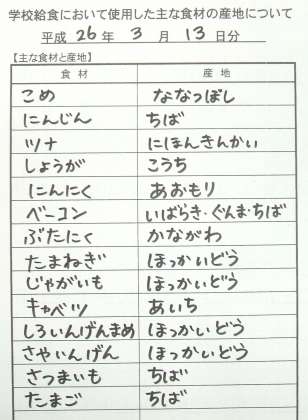 学校給食において使用した主な食材の産地について
平成 26 年 3 月 13 日分
【主な食材と産地】
食材 産地
こめ ななつぼし
にんじん ちば
ツナ にほんきんかい
しょうが こうち
にんにく あおもり
ベーコン いばらき・ぐんま・ちば
ぶたにく かながわ
たまねぎ ほっかいどう
じゃがいも ほっかいどう
キャベツ あいち
しろいんげんまめ ほっかいどう
さやいんげん ほっかいどう
さつまいも ちば
たまご ちば